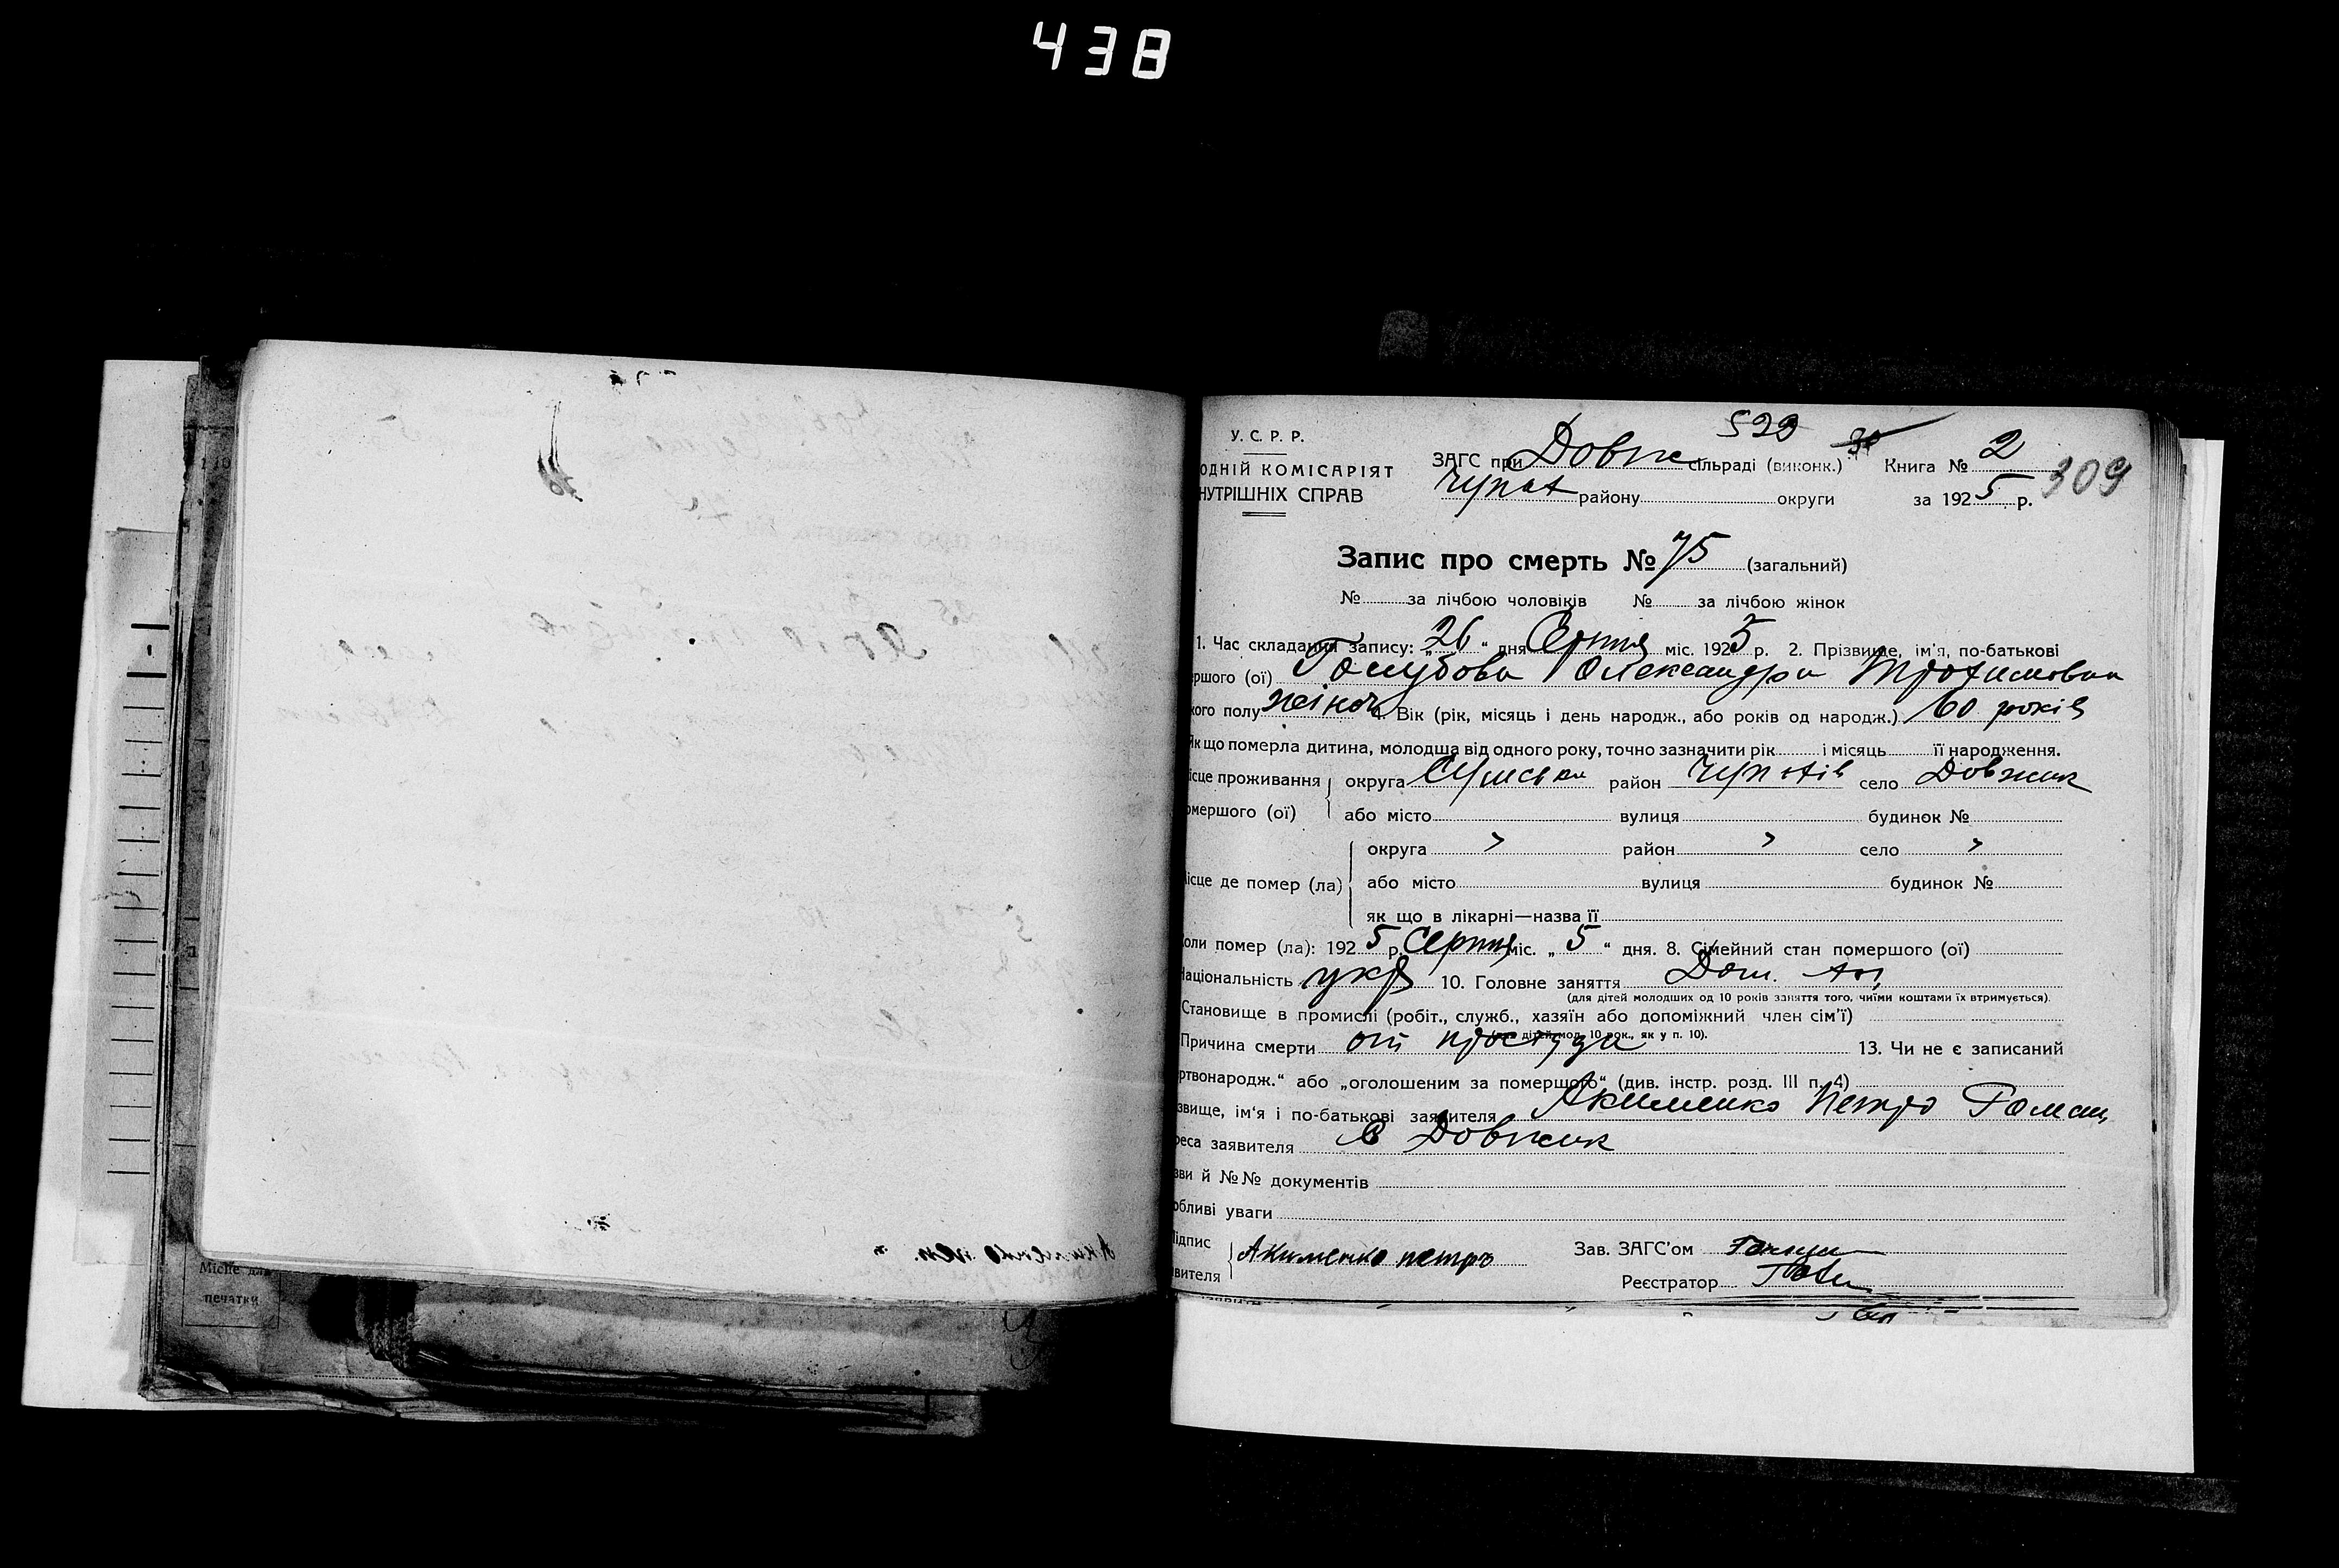 438
У. С. Р. Р.
ОДНІЙ КОМІСАРІЯТ
НУТРІШНІХ СПРАВ
529
ЗАГС при Довж сільраді (виконк.) Книга № 2
309
району округи за 1925 р.
Запис про смерть № 75 (загальний)
№ за лічбою чоловіків № за лічбою жінок
1. Час складання запису: „26“ дня Серпня міс. 1925 р. 2. Прізвище, ім'я, по-батькові
ршого (ої) Голубова Олександра Трохимовна
кого полу жіноч 4. Вік (рік, місяць і день народж., або років од народж.) 60 років
Як що померла дитина, молодша від одного року, точно зазначити рік і місяць її народження.
ісце проживання округа Сумська район село Довжик
омершого (ої) або місто вулиця будинок №
округа " район " село "
ісце де помер (ла) або місто вулиця будинок №
як що в лікарні—назва її
оли помер (ла): 1925 р. Серпня міс. „5“ дня. 8. Сімейний стан помершого (ої)
Національність укр 10. Головне заняття Дом.
(для дітей молодших од 10 років заняття того, чиїми коштами їх втримується)
Становище в промислі (робіт., служб., хазяїн або допоміжний член сім'ї)
(для дітей мол. 10 рок., як у п. 10).
Причина смерти от простуда 13. Чи не є записаний
ртвонародж.“ або „оголошеним за помершого“ (див. інстр. розд. III п. 4)
звище, ім'я і по-батькові заявителя Акименко Петро Роман
реса заявителя С Довжик
зви й №№ документів
обливі уваги
Підпис
явителя Акименко петро Зав. ЗАГС'ом
Реєстратор
Місце для
печатки